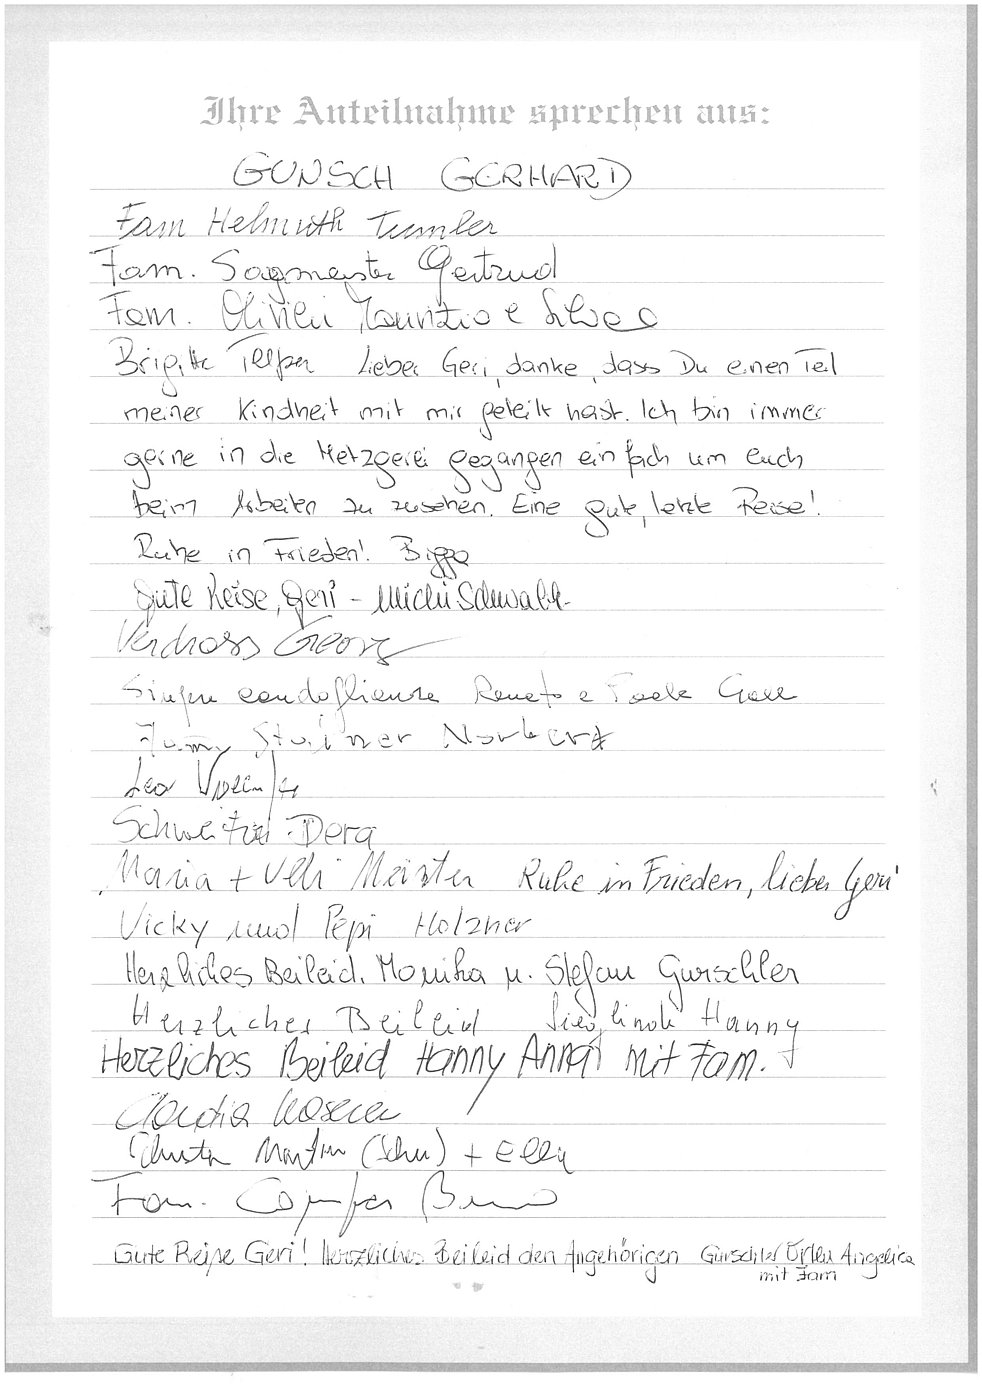 Ihre Anteilnahme sprechen aus:
GUNSCH GERHARD
Fam Helmuth Tumler
Fam. Sagmeister Gertrud
Fam. Olivieri Maurizio e
Brigitte Lieber Geri, danke, dass Du einen Teil
meiner Kindheit mit mir geteilt hast. Ich bin immer
gerne in die Metzgerei gegangen einfach um euch
beim Arbeiten zu zusehen. Eine gute, letzte Reise!
Ruhe in Frieden! Bigga
Gute Reise, Geri - Michi Schwalt
Verdross Georg
Renato e
Norbert
Leo
Schweitzer Dora
Maria + Ulli Meister Ruhe in Frieden, lieber Geri
Vicky und Pepi Holzner
Herzliches Beileid. Monika u. Stefan Gurschler
Herzliches Beileid Sieglinde Hanny
Herzliches Beileid Hanny Anna mit Fam.
Claudia
Martin + Elly
Fam.
Gute Reise Geri! Herzliches Beileid den Angehörigen Gurschler Angelica
mit Fam